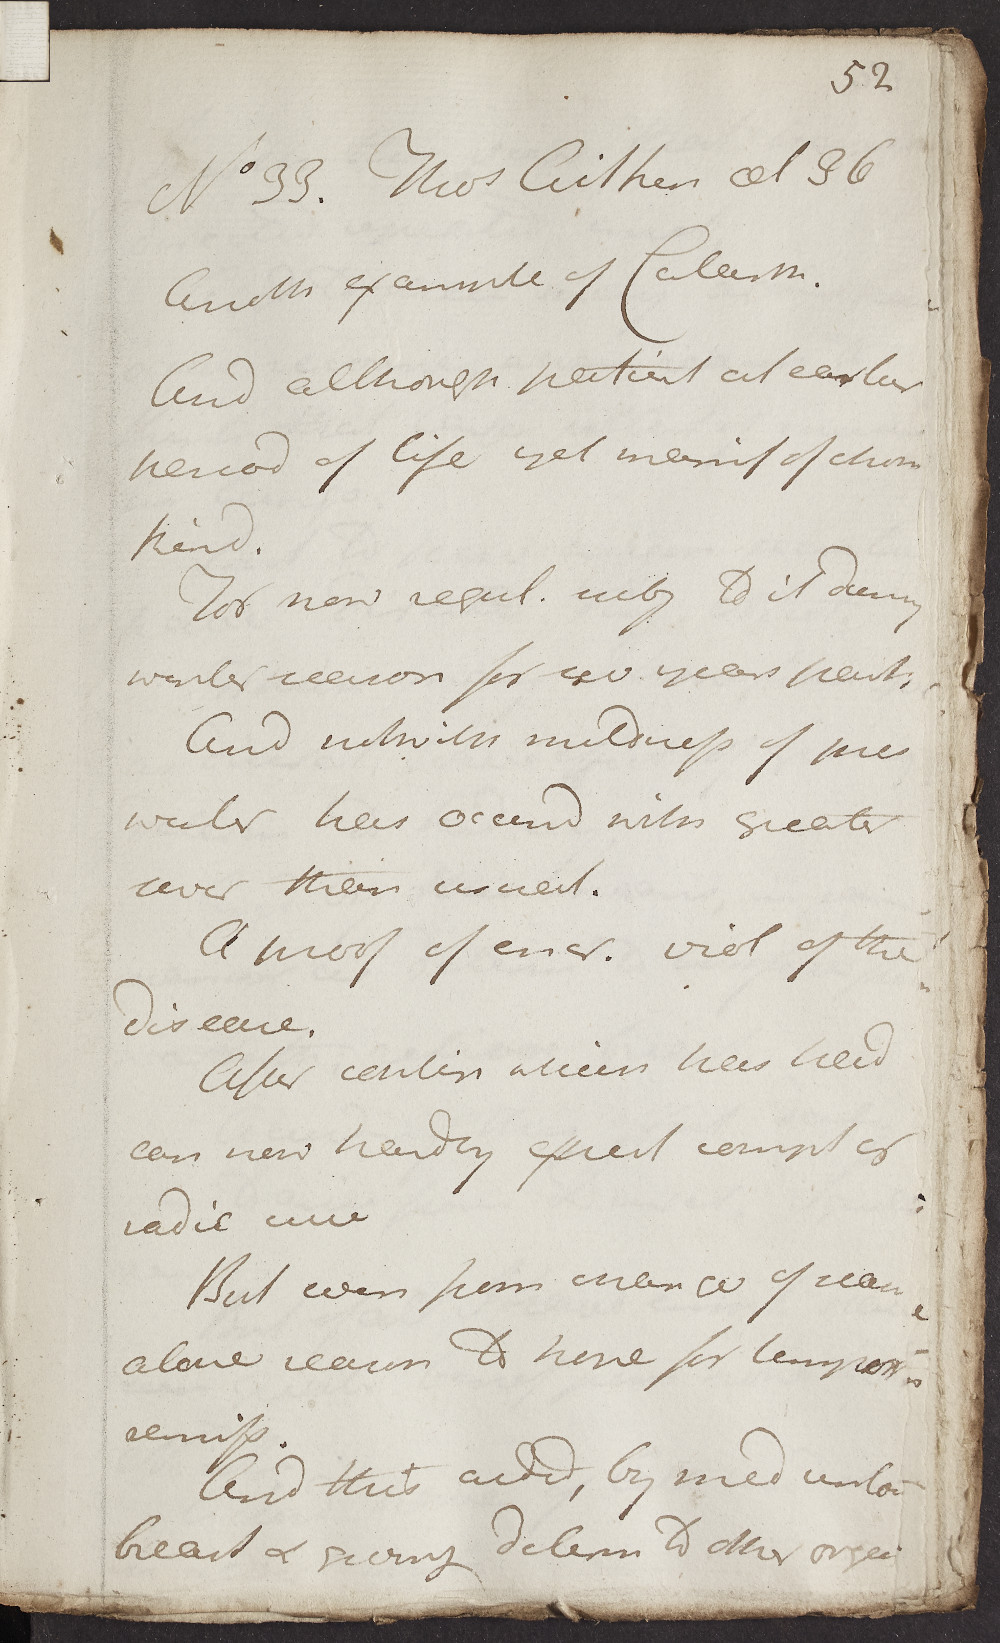 52
No 33. Thos Aitken æt 36
Anoth example of Catarrh.
And although patient at earlier
period of life yet manif of chron
kind.
For now regul. subj to it during
winter season for two years past.
And notwith mildness of pres
winter has occurrd with greater
sever than usual.
A proof of incr. viol of the
disease.
After contin which has had
can now hardly expect compl or
radic cure
But even from change of seas
alone reason to hope for tempor
remiss.
And this aidd, by med unload
breast & giving determ to other organ